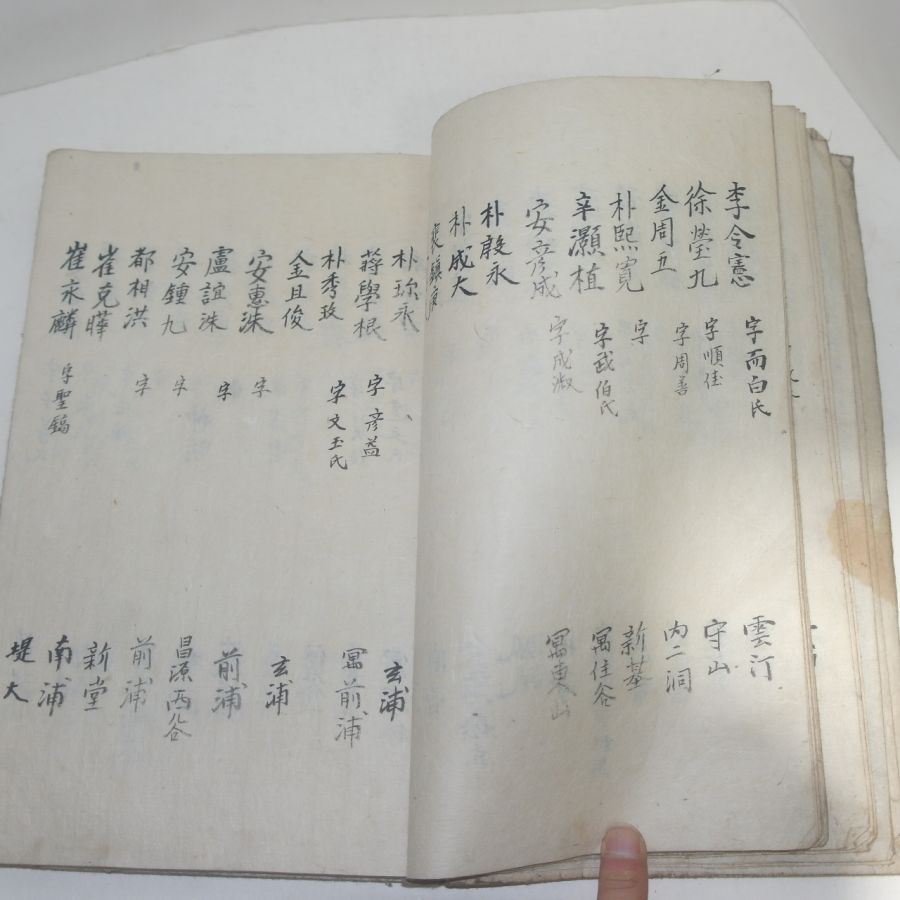 李令憲 字而白氏 雲汀
徐瑩九 字順佳 守山
金周五 字周善 內二洞
朴熙寬 字 新基
辛灝植 字武伯氏 寓佳谷
安彦成 字成淑 寓東山
朴殷永
朴成大
朴珎永 玄浦
蔣學根 字彦益 寓前浦
朴秀玫 字文玉氏
金且俊 玄浦
安惠洙 字 前浦
盧誼洙 字
安鍾九 字 昌源西谷
都相洪 字 前浦
崔克曄 新堂
崔永麟 字聖鎬 南浦
堤大